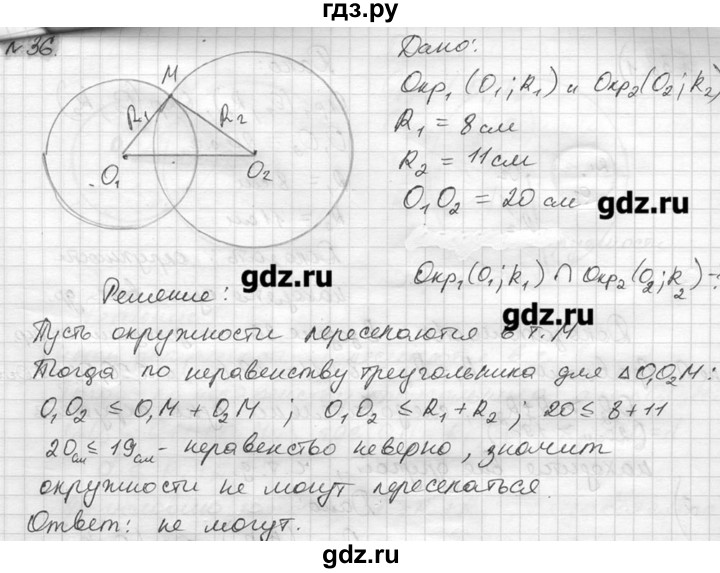 гдз.ру
№36.
M
R1
R2
O1
O2
Дано:
Окр1 (O1; R1) и Окр2 (O2; R2)
R1 = 8 см
R2 = 11 см
O1O2 = 20 см
gdz.ru
Окр1(O1; R1) ∩ Окр2(O2; R2) - ?
gdz.ru
Решение:
gdz.ru
Пусть окружности пересекаются в т. M
Тогда по неравенству треугольника для ΔO1O2M:
O1O2 ≤ O1M + O2M ; O1O2 ≤ R1 + R2 ; 20 ≤ 8 + 11
20см ≤ 19см - неравенство неверно, значит
окружности не могут пересекаться.
Ответ: не могут.
gdz.ru